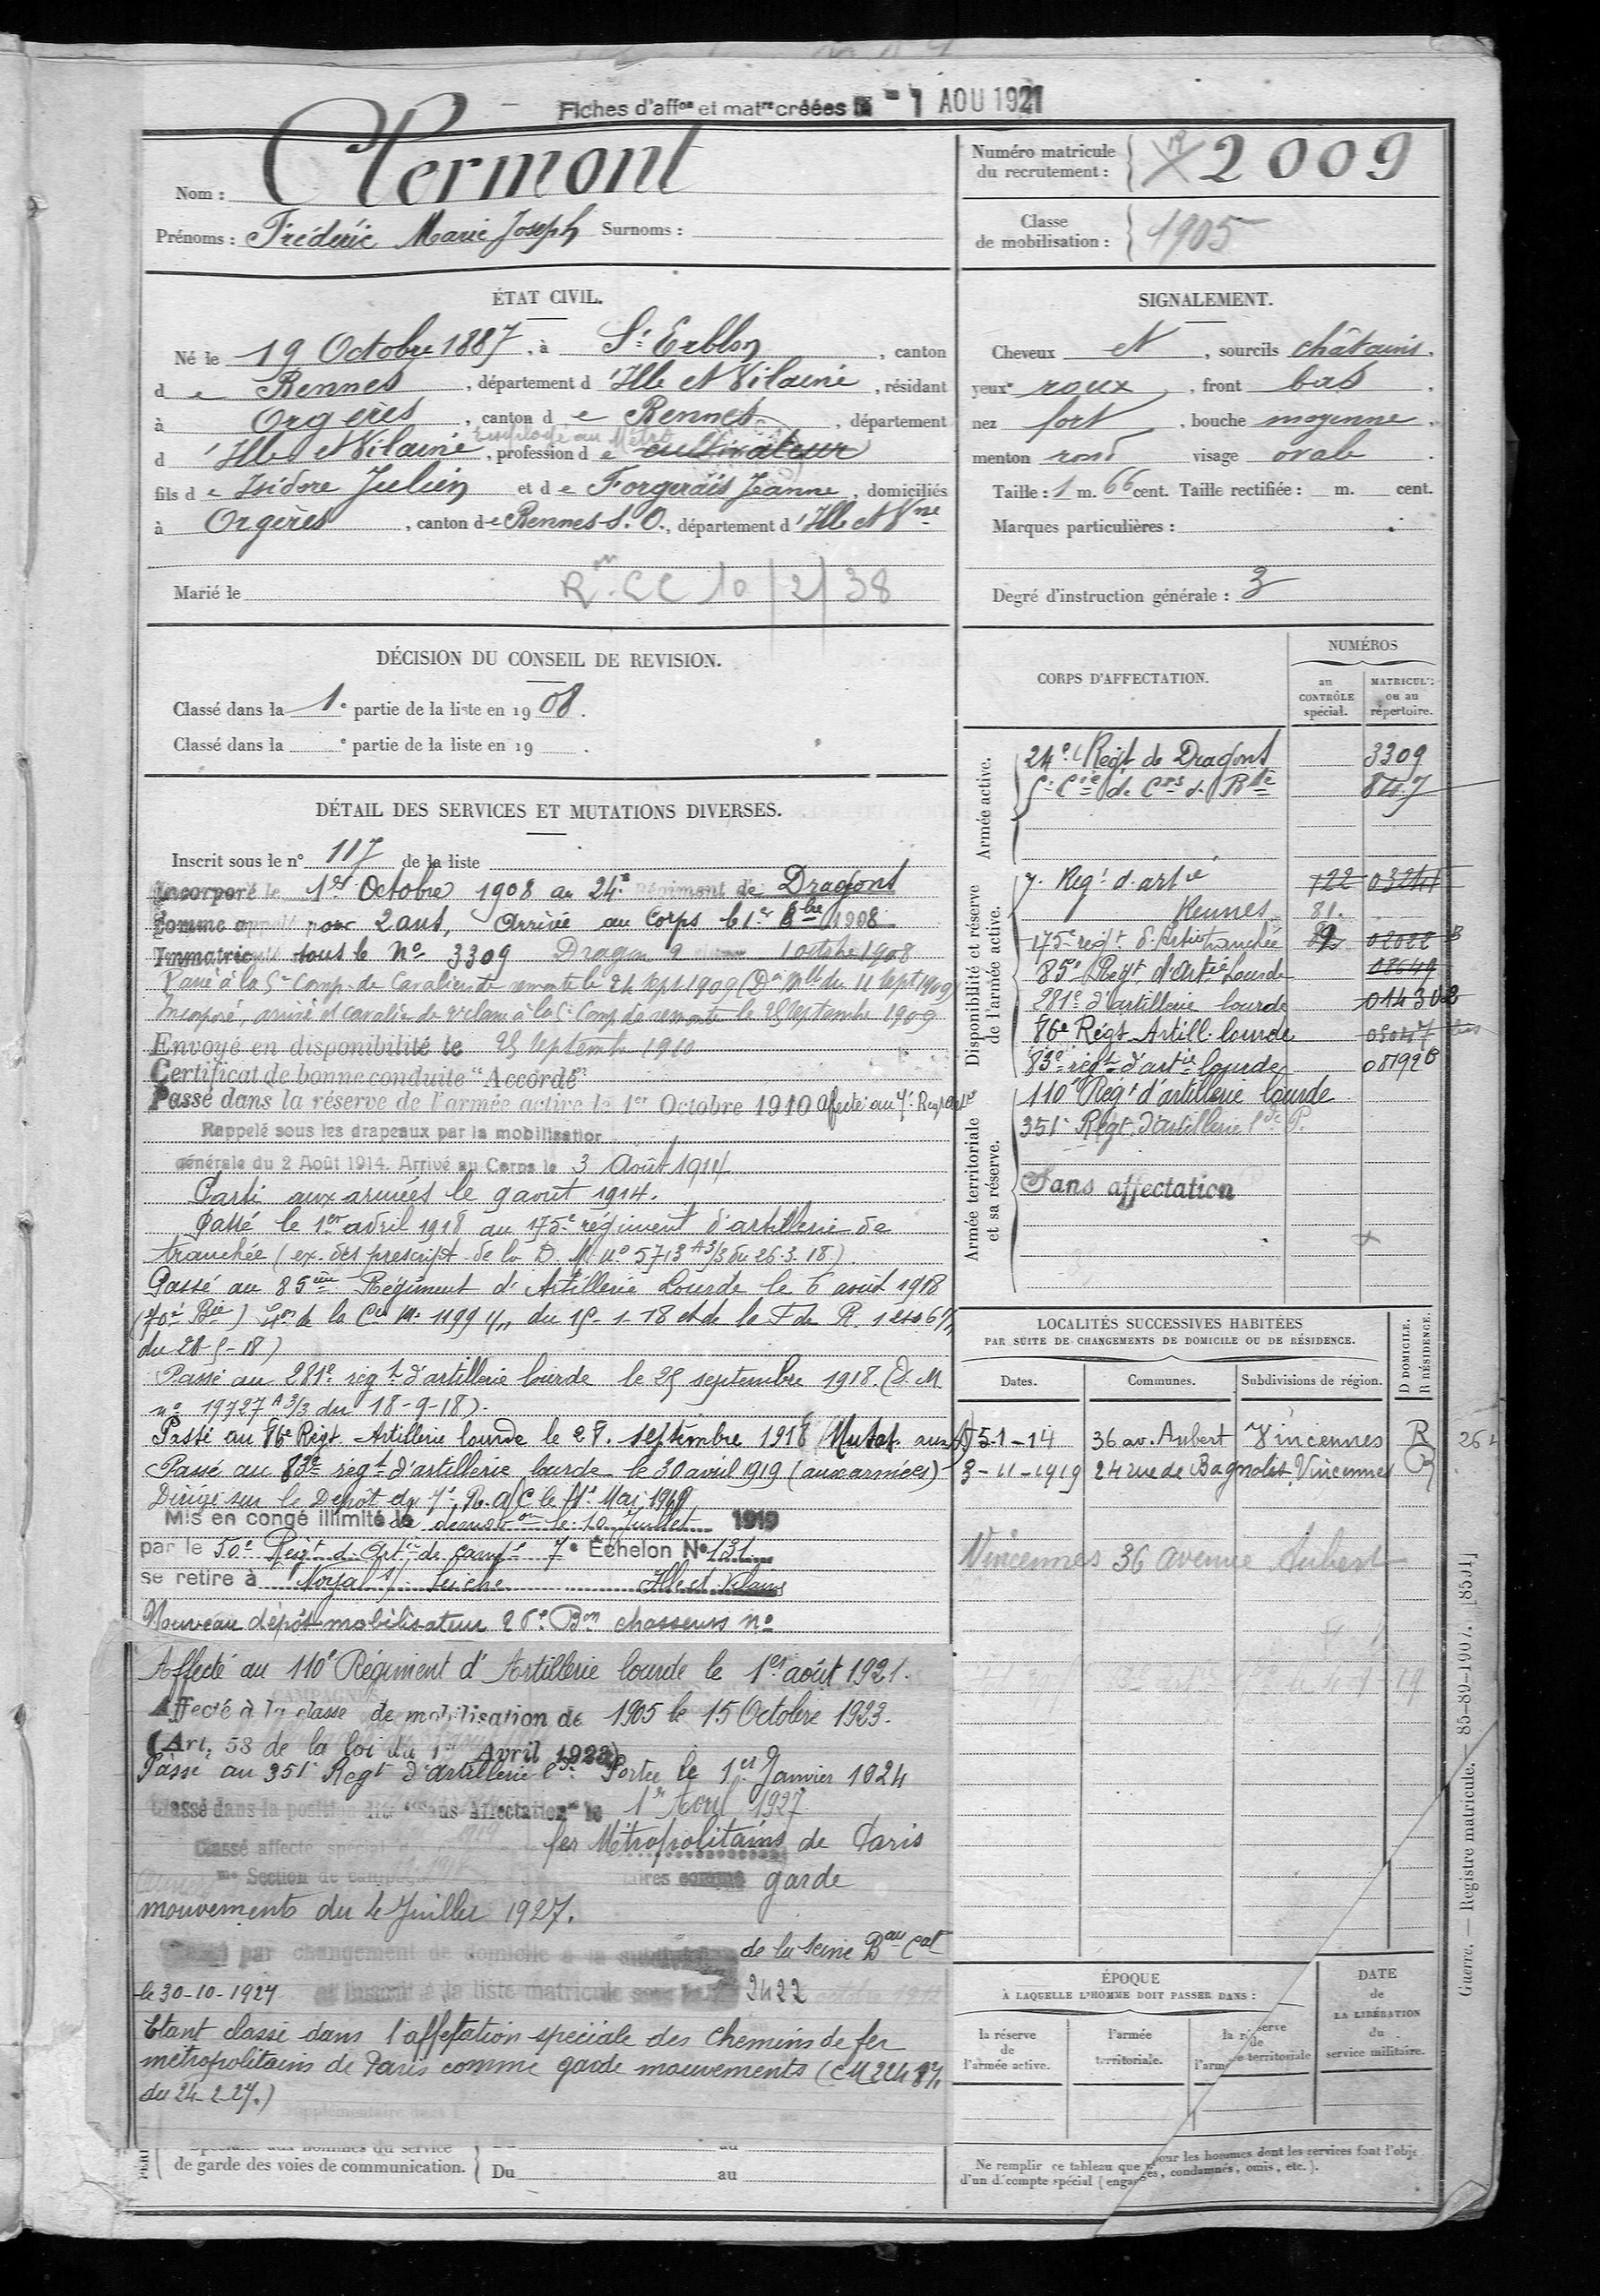 Fiches d'affon et matre créées le - 1 AOU 1921
Nom : Clermont
Prénoms : Frédéric Marie Joseph Surnoms :
Numéro matricule du recrutement : 2009
Classe de mobilisation : 1905
ÉTAT CIVIL.
Né le 19 Octobre 1887, à St Erblon, canton
de Rennes, département d'Ille et Vilaine, résidant
à Orgères, canton de Rennes, département
Employé au Métro
d'Ille et Vilaine, profession de cultivateur
fils de Isidore Julien et de Forgerais Jeanne, domiciliés
à Orgères, canton de Rennes S.O., département d'Ille et Vne
Marié le
Rm CC 10/2/38
SIGNALEMENT.
Cheveux et, sourcils châtains,
yeux roux, front bas,
nez fort, bouche moyenne,
menton rond visage ovale.
Taille : 1 m. 66 cent. Taille rectifiée : m. cent.
Marques particulières :
Degré d'instruction générale : 3
DÉCISION DU CONSEIL DE REVISION.
Classé dans la 1e partie de la liste en 1908.
Classé dans la e partie de la liste en 19 .
DÉTAIL DES SERVICES ET MUTATIONS DIVERSES.
Inscrit sous le n° 117 de la liste
Incorporé le 1er Octobre 1908 au 24e Régiment de Dragons
Comme appelé pour 2 ans, Arrivé au Corps le 1er 8bre 1908
Immatriculé sous le No 3309 Dragon 2 classe 1 octobre 1908
Passé à la 5e Comp. de Cavaliers de remonte le 24 Sept 1909 (Don Mlle du 11 Sept 1909)
Incorporé, arrivé et cavalier de 2e classe à la 5e Comp de remonte le 25 Septembre 1909
Envoyé en disponibilité le 25 Septembre 1910
Certificat de bonne conduite "Accordé"
Passé dans la réserve de l'armée active le 1er Octobre 1910 Affecté au 7e Regt Artie
Rappelé sous les drapeaux par la mobilisation
générale du 2 Août 1914. Arrivé au Corps le 3 Août 1914
Parti aux armées le 9 août 1914.
Passé le 1er avril 1918 au 175e régiment d'artillerie de
tranchée (ex. des prescript. de la D. M. no 5713 A 3/3 du 26.3.18)
Passé au 85ème Régiment d'Artillerie Lourde le 6 août 1918
(70e Bie) on de la Cre Mle 1199 du 15-1-18 et de la
du 21-5-18)
Passé au 281e régt d'artillerie lourde le 25 septembre 1918. (D. M
no 19727 A 3/3 du 18-9-18).
Passé au 86e Régt Artillerie lourde le 28. septembre 1918 (Mutat. aux A)
Passé au 83e régt d'artillerie lourde le 30 avril 1919 (aux armées)
Dirigé sur le Dépôt du 7e R.A.C le Mai 1919
Mis en congé illimité de démobon le 10 Juillet 1919
par le 50e Regt d'Artie de campe 7e Échelon N° 131
se retire à Noyal s/ Seiche Ille et Vilaine
Nouveau dépôt mobilisateur 26e Bon chasseurs no
Affecté au 110e Régiment d'Artillerie lourde le 1er août 1921.
Affecté à la classe de mobilisation de 1905 le 15 Octobre 1923.
(Art. 58 de la loi du 1er Avril 1923)
Passé au 351e Regt d'artillerie lde Portée le 1er Janvier 1924
Classé dans la position dite "Sans Affectation" le 1er Avril 1927
Classé affecté spécial des fer Métropolitains de Paris
me Section de campagne garde
mouvements du 4 Juillet 1927.
par changement de domicile à la subdivision de la Seine Bau Cal
le 30-10-1927 et inscrit à la liste matricule sous le 2422
Etant classé dans l'affectation spéciale des chemins de fer
métropolitains de Paris comme garde mouvements
du 24-2-27.)
de garde des voies de communication. Du au
CORPS D'AFFECTATION.
NUMÉROS
au CONTRÔLE spécial.
MATRICULE ou au répertoire.
Armée active.
24e Régt de Dragons 3309
5e Cie de Cers de Rte 847
Disponibilité et réserve de l'armée active.
7e Regt d'artie 722 03241
Rennes 81.
175e régt d'Artie tranchée 02022 B
85e Regt d'Artie Lourde 08649
281e d'artillerie lourde
86e Régt Artill. lourde 09047 bis
83e régt d'artie lourde 08192B
Armée territoriale et sa réserve.
110e Régt d'artillerie lourde
351e Régt d'artillerie lde P.
Sans affectation
LOCALITÉS SUCCESSIVES HABITÉES
PAR SUITE DE CHANGEMENTS DE DOMICILE OU DE RÉSIDENCE.
D DOMICILE. R RÉSIDENCE.
Dates. Communes. Subdivisions de région.
5-1-14 36 av. Aubert Vincennes R
3-11-1919 24 rue de Bagnolet Vincennes R
Vincennes 36 avenue Aubert
ÉPOQUE
À LAQUELLE L'HOMME DOIT PASSER DANS :
la réserve de l'armée active.
l'armée territoriale.
la réserve de l'armée territoriale
DATE de LA LIBÉRATION du service militaire.
Ne remplir ce tableau que pour les hommes dont les services font l'obje
d'un décompte spécial (engagés, condamnés, omis, etc.).
Guerre. — Registre matricule. — 85-89-1907. [8501]